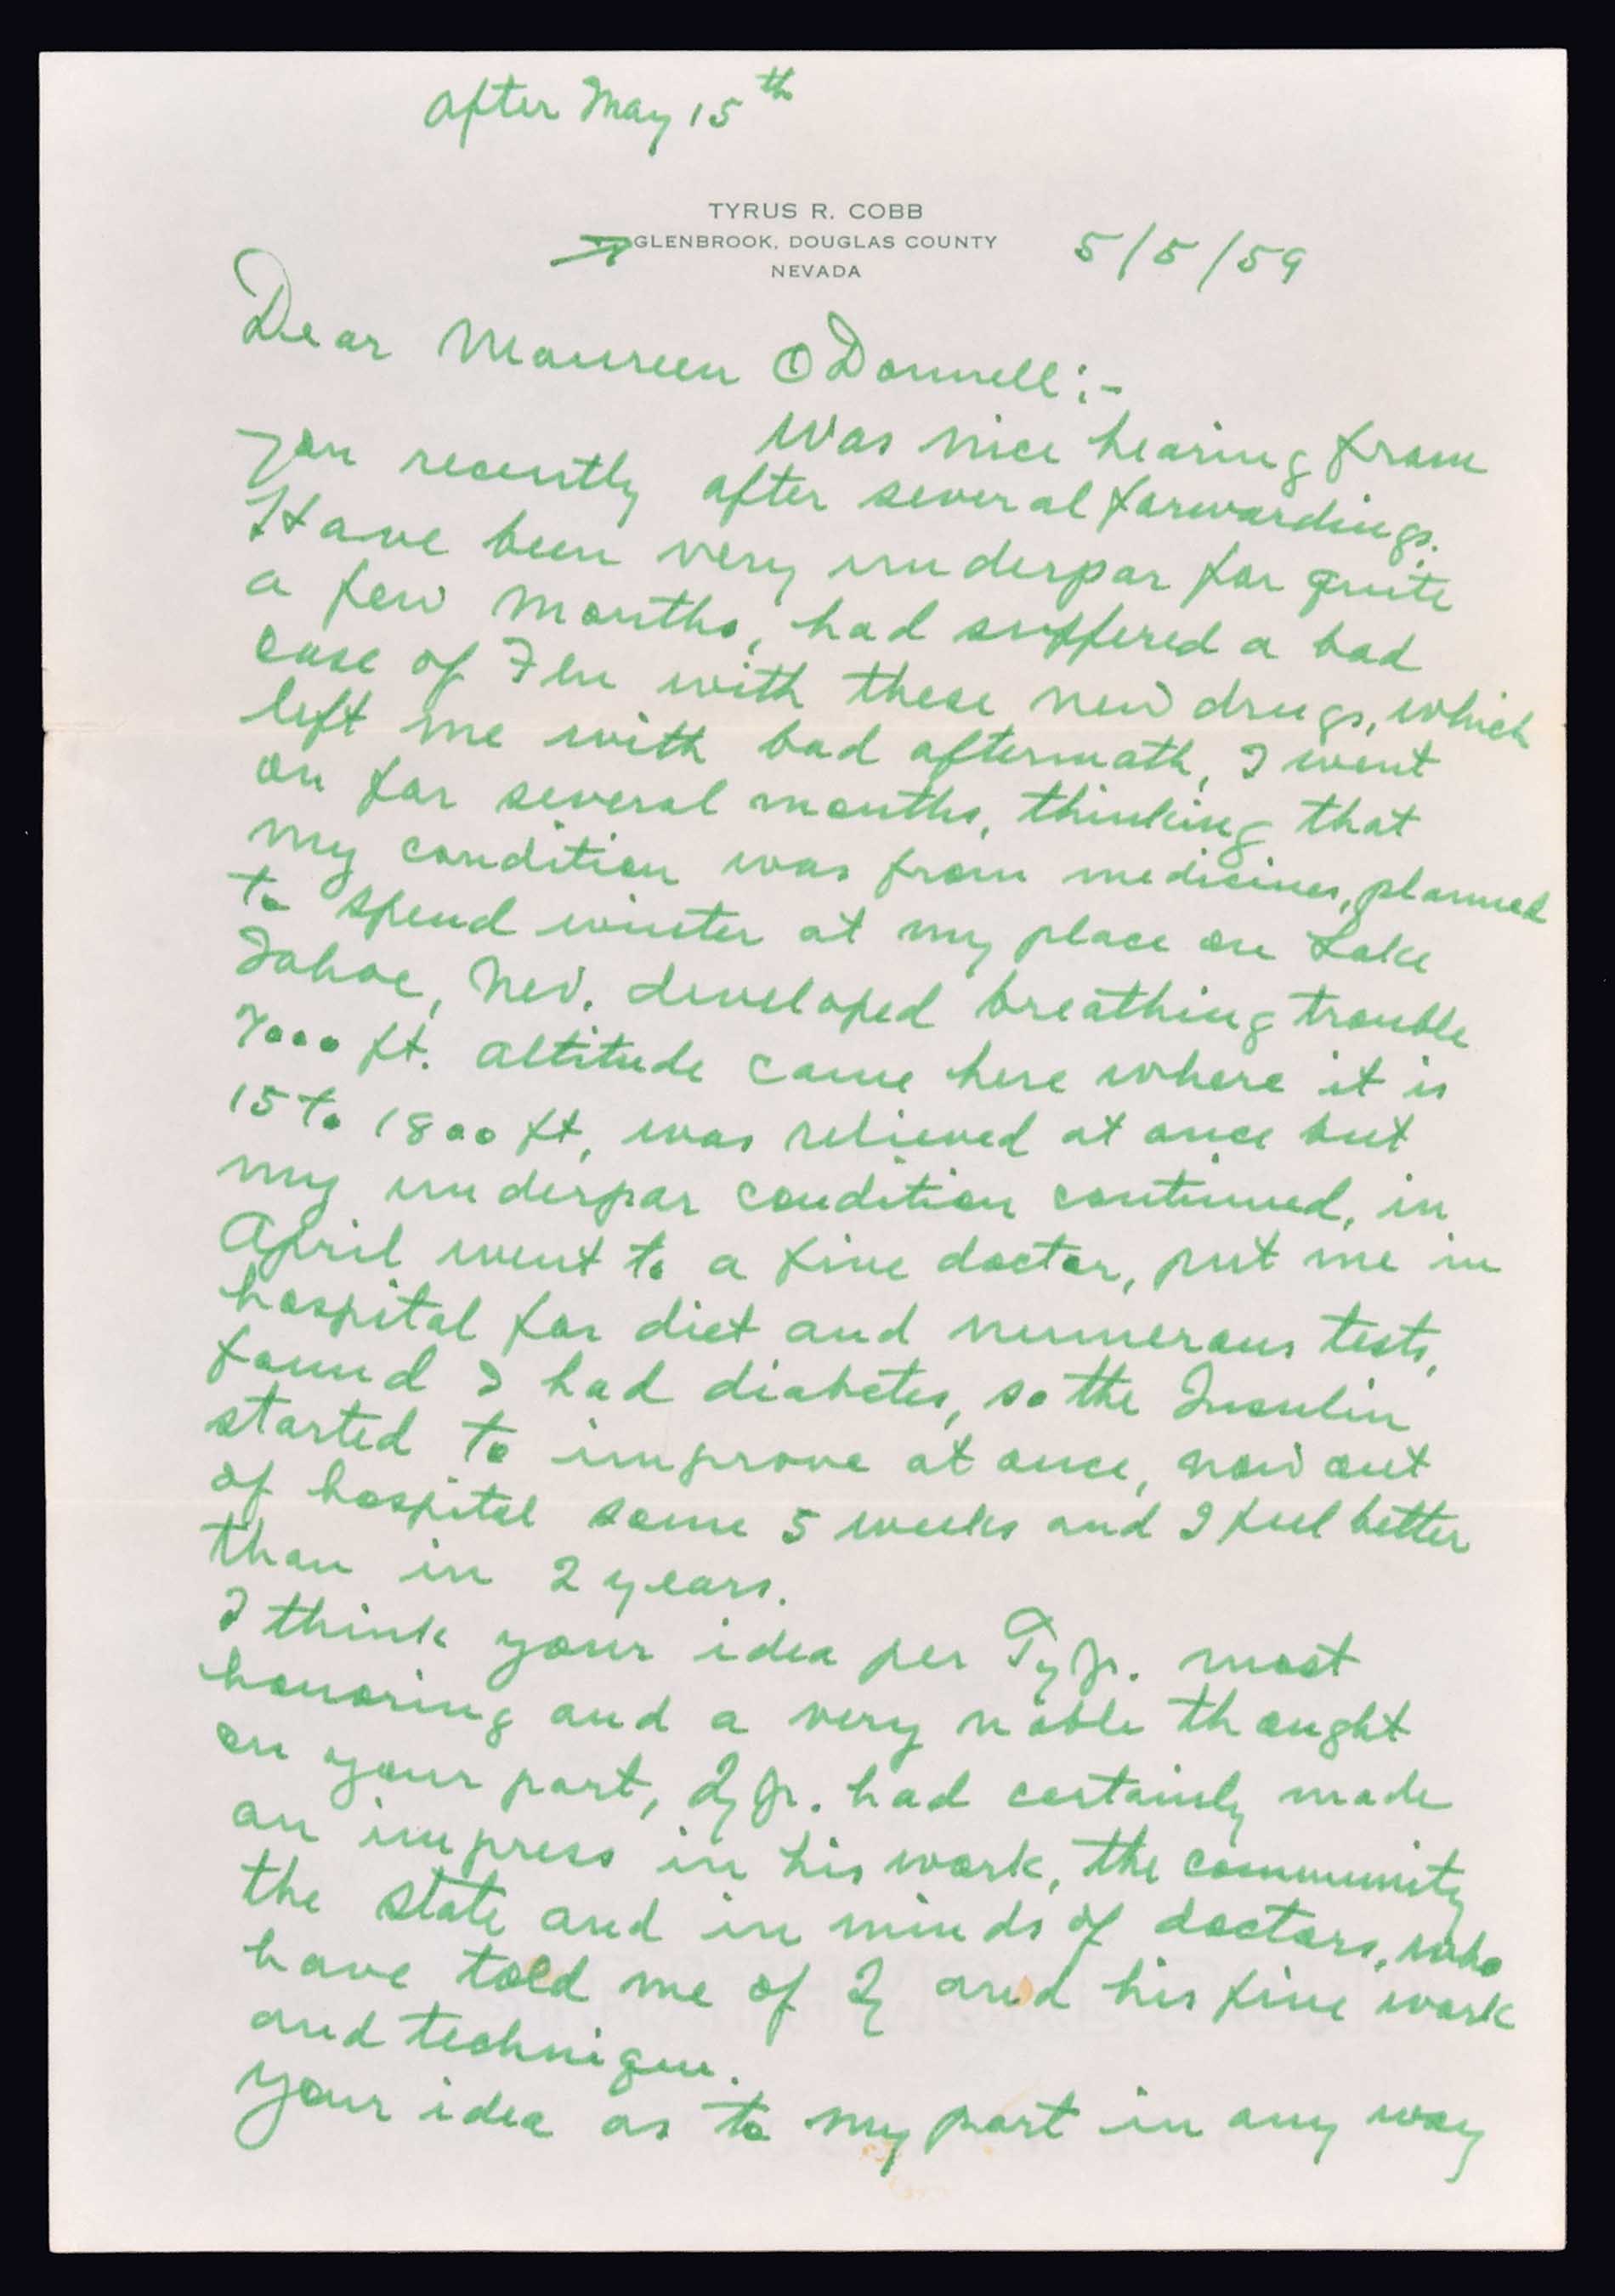 after May 15th
TYRUS R. COBB
GLENBROOK, DOUGLAS COUNTY
NEVADA
5/5/59
Dear Maureen O Donnell:-
Was nice hearing from
you recently after several forwardings.
Have been very underpar for quite
a few months, had suffered a bad
case of Flu with these new drugs, which
left me with bad aftermath, I went
on for several months, thinking that
my condition was from medicines, planned
to spend winter at my place on Lake
Tahoe, Nev. developed breathing trouble
7000 ft. altitude came here where it is
15 to 1800 ft, was relieved at once but
my underpar condition continued, in
April went to a fine doctor, put me in
hospital for diet and numerous tests,
found I had diabetes, so the Insulin
started to improve at once, now out
of hospital some 5 weeks and I feel better
than in 2 years.
I think your idea per Ty Jr. most
honoring and a very noble thought
on your part, Ty Jr. had certainly made
an impress in his work, the community
the state and in minds of doctors, who
have told me of Ty and his fine work
and technique.
Your idea as to my part in any way